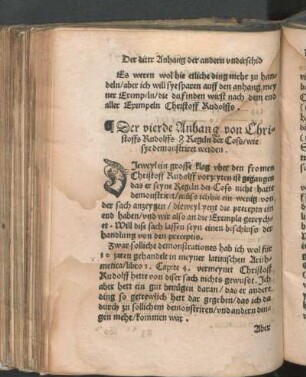 Der dritt Anhang der andern underschid
Es weren wol hie etliche ding mehr zu han-
deln/aber ich will sye sparen auff den anhang mey
ner Exempeln/die du finden würst nach dem end
aller Exempeln Christoff Rudolffs.
¶ Der vierde Anhang von Chri-
stoffs Rudolffs Regeln der Coss/wie
sye demonstriert werden
DJeweyl ein grosse klag uber den fromen
Christoff Rudolff vor zeyten ist gegangen
das er seyne Regeln der Coss nicht hatte
demonstriert/muss ich hie ein wenig von
der sach anzeygen/dieweyl wir die precepta ein
end haben/und wir also an die Exempla gereych-
et. Will diss sach lassen seyn einen beschluss der
handlung von den preceptis.
Zwar solliche demonstrationes hab ich wol für
10 jaren gehandelt in meyner latinischen Arith-
metica/libro 3. Capite 4. vermeynet Christoff
Rudolff hette von diser sach nichts gewusst. Jch
aber hett ein gut benügen daran/das er andere
ding so getrewlich hett dar gegeben/das ich da
durch zu sollichem demonstriren/und andern din-
gen mehr/kommen war.
Aber